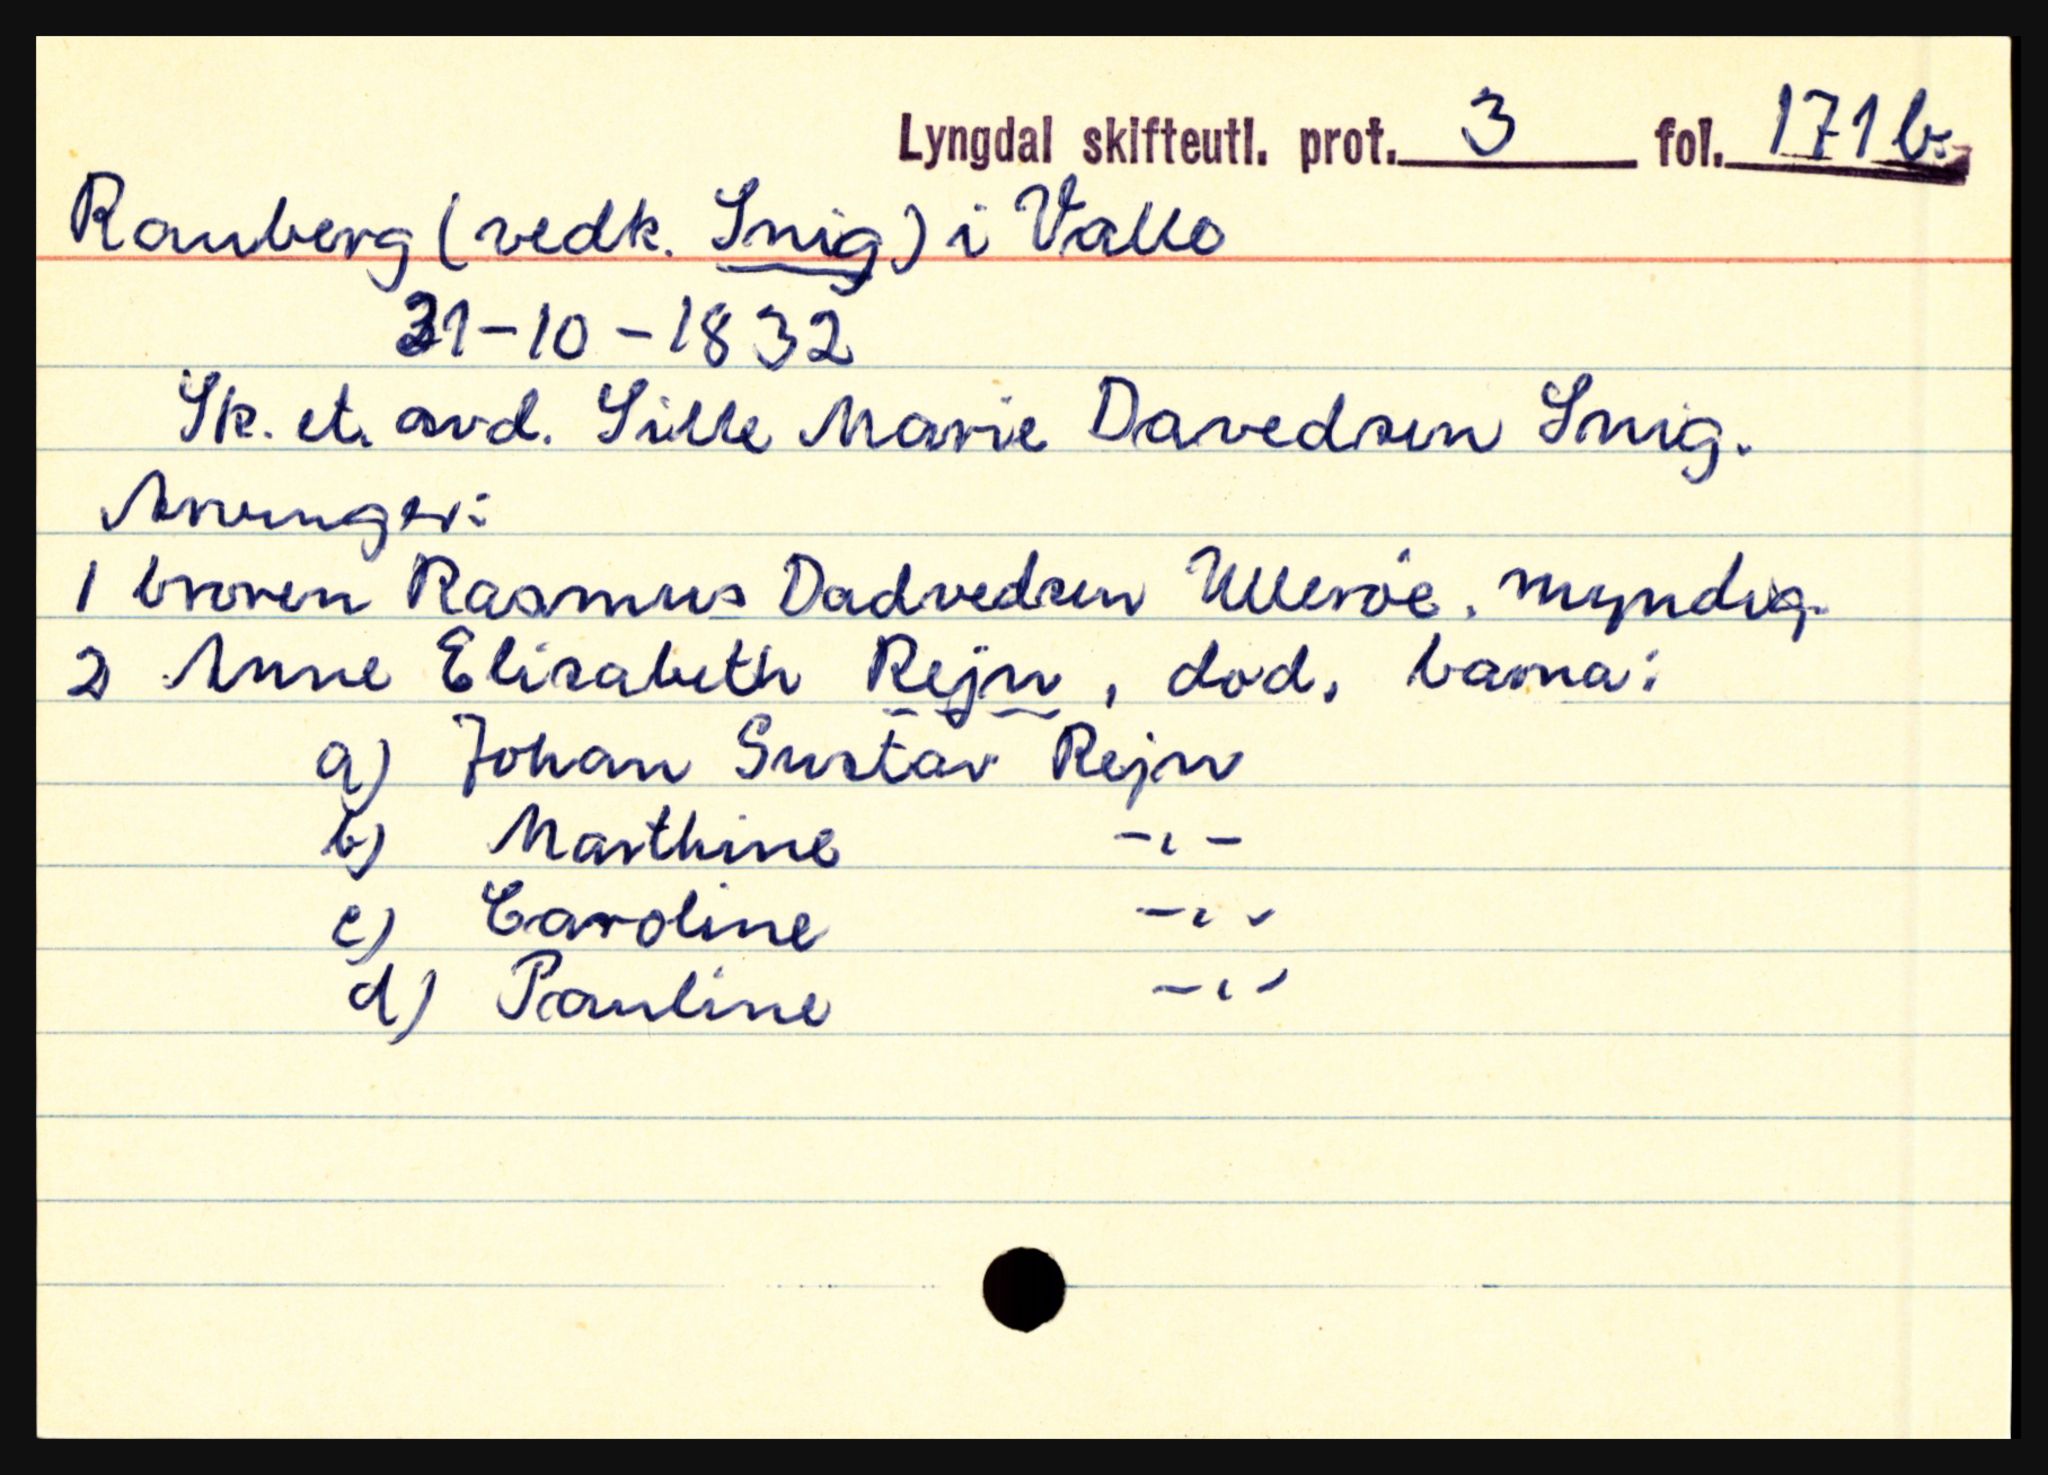 Lyngdal skifteutl. prot. 3 fol. 171 b.
Rauberg (vedk. Snig) i Vallo
31-10-1832
Sk. et. avd. Sille Marie Davedsen Snig.
Arvinger:
1 broren Rasmus Dadvedsen Ullerøe, myndig.
2 Anne Elisabeth Rejn, død, barna:
a) Johan Gustav Rejn
b) Marthine -"-
c) Caroline -"-
d) Pauline -"-